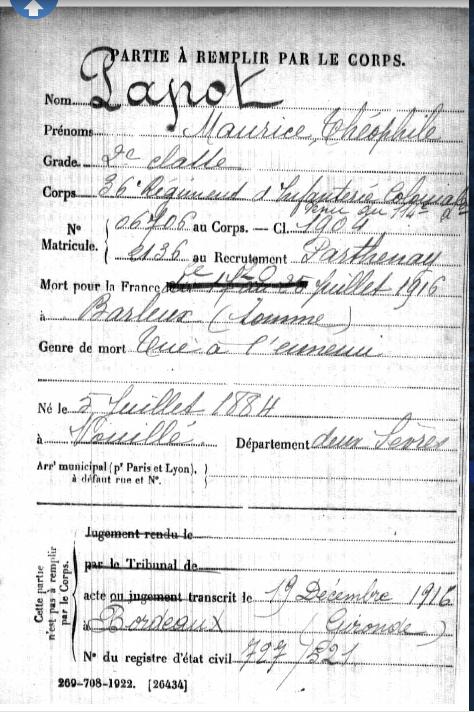 PARTIE À REMPLIR PAR LE CORPS.
Nom Papot
Prénoms Maurice, Théophile
Grade 2e classe
Corps 36e Régiment d'Infanterie Coloniale
venu du 114e
Nº 06706 au Corps. — Cl. 1904
Matricule. 2136 au Recrutement Parthenay
Mort pour la France le Juillet 1916
à Barleux (Somme)
Genre de mort Tué à l'ennemi
Né le 5 Juillet 1884
à Vouillé Département deux Sèvres
Arrt municipal (pr Paris et Lyon),
à défaut rue et Nº.
Cette partie
n'est pas à remplir
par le Corps.
Jugement rendu le
par le Tribunal de
acte ou jugement transcrit le 19 Décembre 1916
à Bordeaux (Gironde)
Nº du registre d'état civil 727/221
269-708-1922. [26434]